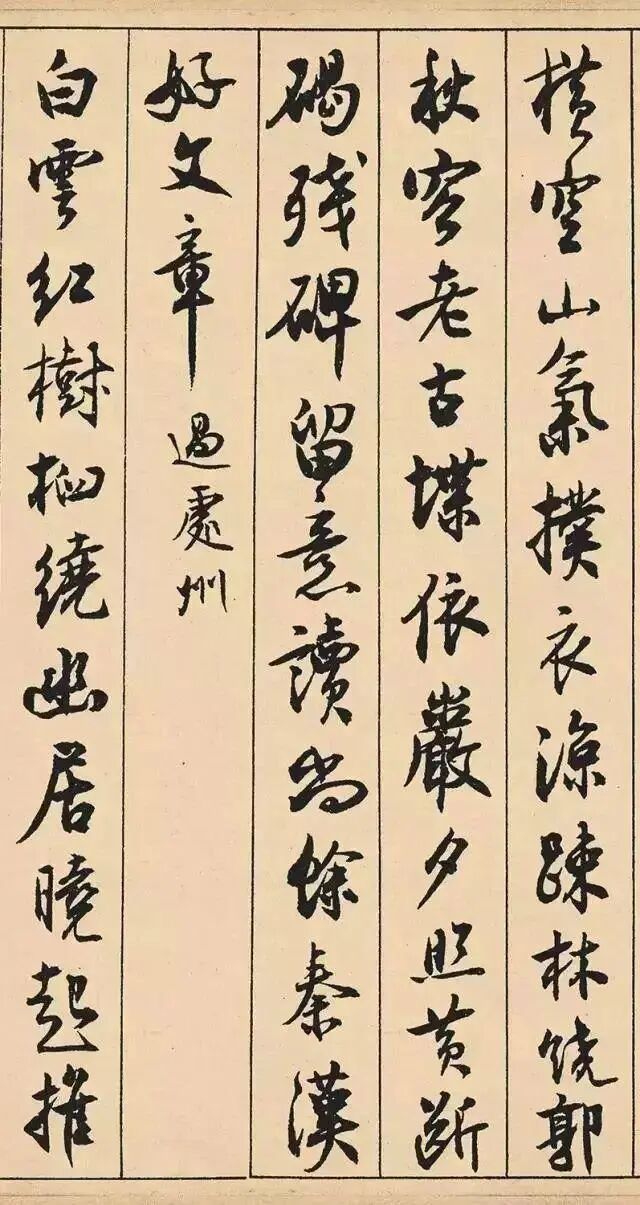 橫空山氣撲衣涼疎林繞郭
秋容老古堞依巖夕照黃斷
碣殘碑留意讀尚餘秦漢
好文章 過處州
白雲紅樹相繞幽居曉起推